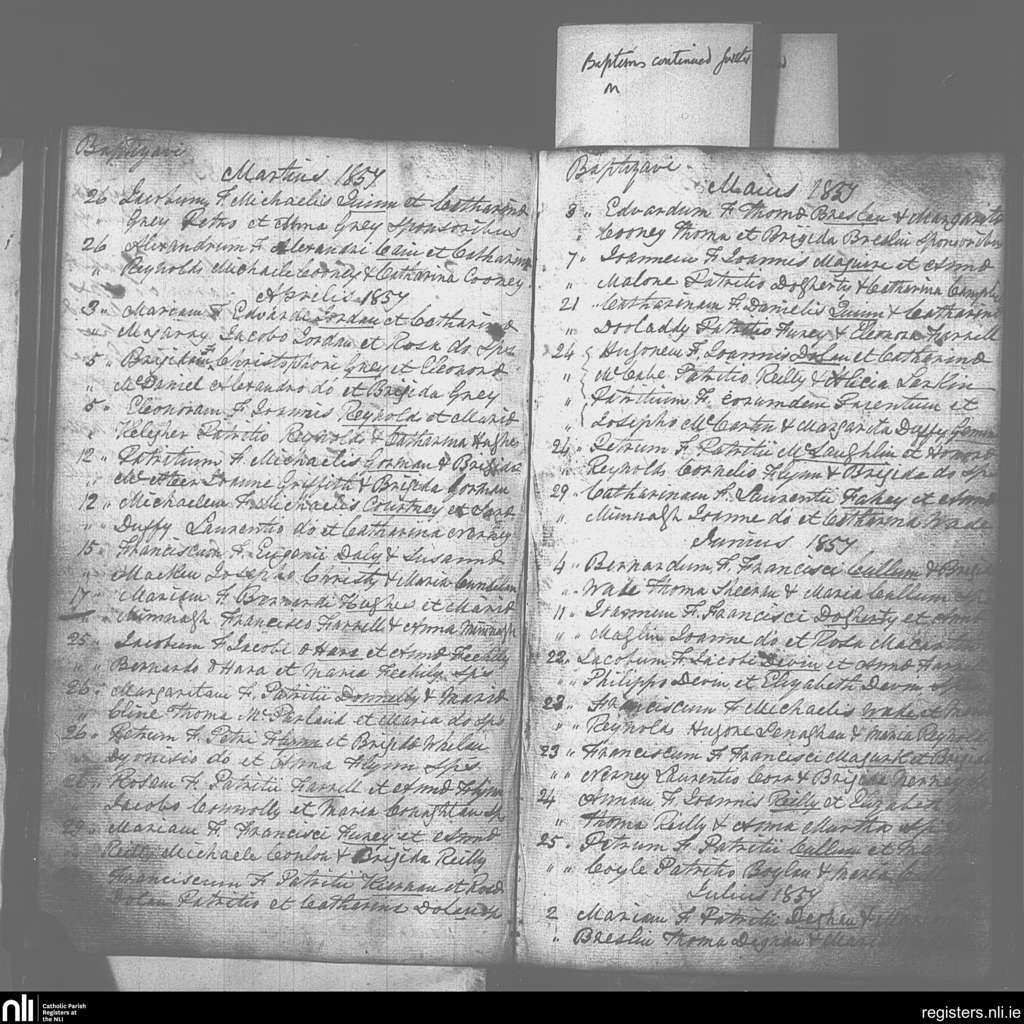 Baptisms continued
Baptizavi
Martius 1857
26 Jacobum F. Michaelis Quinn et Catharina
Grey Petro et Anna Grey Sponsoribus
26 Alexandrum F. Alexandri Cain et Catharina
" Reynolds Michaele Cooney & Catharina Cooney
Aprilis 1857
3 " Mariam F. Edvardi Jordan et Catharina
" McGarry Jacobo Jordan et Rosa do Sps
5 " Brigidam F. Christophori Grey et Eleonora
" McDaniel Alexandro do et Brigida Grey
5 " Eleonoram F. Joannis Reynolds et Maria
" Kelegher Patritio Reynolds & Catharina Hughes
12 " Patritium F. Michaelis Gorman & Brigida
" McAteer Joanne Griffith & Brigida Gorman
12 " Michaelem F. Michaelis Courtney et
" " Duffy Laurentio do et Catharina Nerney
15 " Franciscum F. Eugenii Daly & Susanna
" " Macken Josepho Christy & Maria
17 " Mariam F. Bernardi Hughes et Maria
" Mimnagh Francisco Farrell & Anna Mimnagh
25 " Jacobum F. Jacobi O Hara et Anna Feehily
" " Bernardo O Hara et Maria Feehily Sps
26 " Margaritam F. Patritii Donnelly & Maria
" Cline Thoma McParland et Maria do Sps
26 " Petrum F. Petri Flynn et Brigida Whelan
" Dyonisio do et Anna Flynn Sps.
Rosam F. Patritii Farrell et Anna Flynn
Jacobo Connolly et Maria Coughlan Sp
29 " Mariam F. Francisci Furey et Anna
Reilly Michaele Conlon & Brigida Reilly
Franciscum F. Patritii Kiernan et Rosa
Dolan Patritio et Catharina Dolan Sp
Baptizavi
Maius 1857
3 " Edvardum F. Thoma Breslin & Margarita
" Cooney Thoma et Brigida Breslin Sponsoribus
7 " Joannem F. Joannis Maguire et Anna
" Malone Patritio Dogherty & Catharina
21 " Catharinam F. Danielis Quinn & Catharina
" Dooladdy Patritio Furey & Eleonora Farrell
24 " Hugonem F. Joannis Dolan et Catharina
" McCabe Patritio Reilly & Alicia Larkin
" Patritium F. eorumdem Parentum et
" Josepho McCartin & Margarita Duffy
24 " Petrum F. Patritii McLaughlin et Honora
" Reynolds Cornelio Flynn & Brigida do Sp
29 " Catharinam F. Laurentii Fahey et Anna
" Mimnagh Joanne do et Catharina Wade
Junius 1857
4 " Bernardum F. Francisci Cullum &
" " Wade Thoma Sheeran & Maria Cullum
11 " Joannem F. Francisci Dogherty et
" " Maglin Joanne do et Rosa
22 " Jacobum F. Jacobi Devin et Anna
" " Philippo Devin et Elizabeth Devin
23 " Franciscum F. Michaelis Wade et
" " Reynolds Hugone Lenaghan & Maria Reynolds
23 " Franciscum F. Francisci Magurk et
" " Nerney Laurentio Corr & Brigida Nerney
24 " Annam F. Joannis Reilly et Elizabeth
" Thoma Reilly & Anna Murtha
25 " Petrum F. Patritii Cullum et
" " Coyle Patritio Boylan & Maria
Julius 1857
2 " Mariam F. Patritii Deghan &
" Breslin Thoma Deghan & Maria
nli
Catholic Parish
Registers at
the NLI
registers.nli.ie